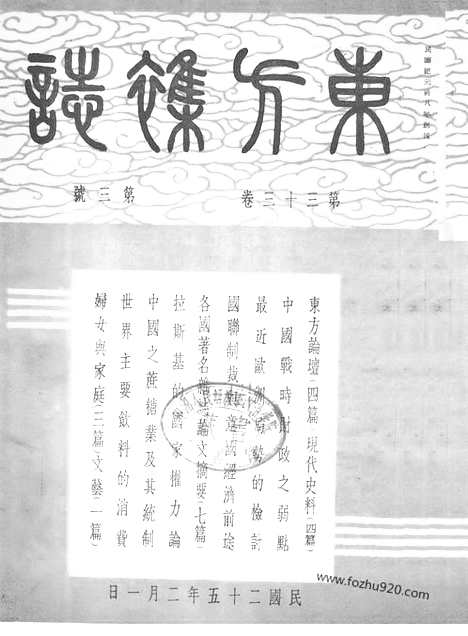 東方雜誌
第三十三卷 第三號
東方論壇(四篇)現代史料(四篇)
中國戰時財政之弱點
最近歐洲局勢的檢討
國聯制裁與意國經濟前途
各國著名雜誌論文摘要(七篇)
拉斯基的國家權力論
中國之蔗糖業及其統制
世界主要飲料的消費
婦女與家庭(三篇)文藝(一篇)
民國二十五年二月一日
www.fozhu920.com